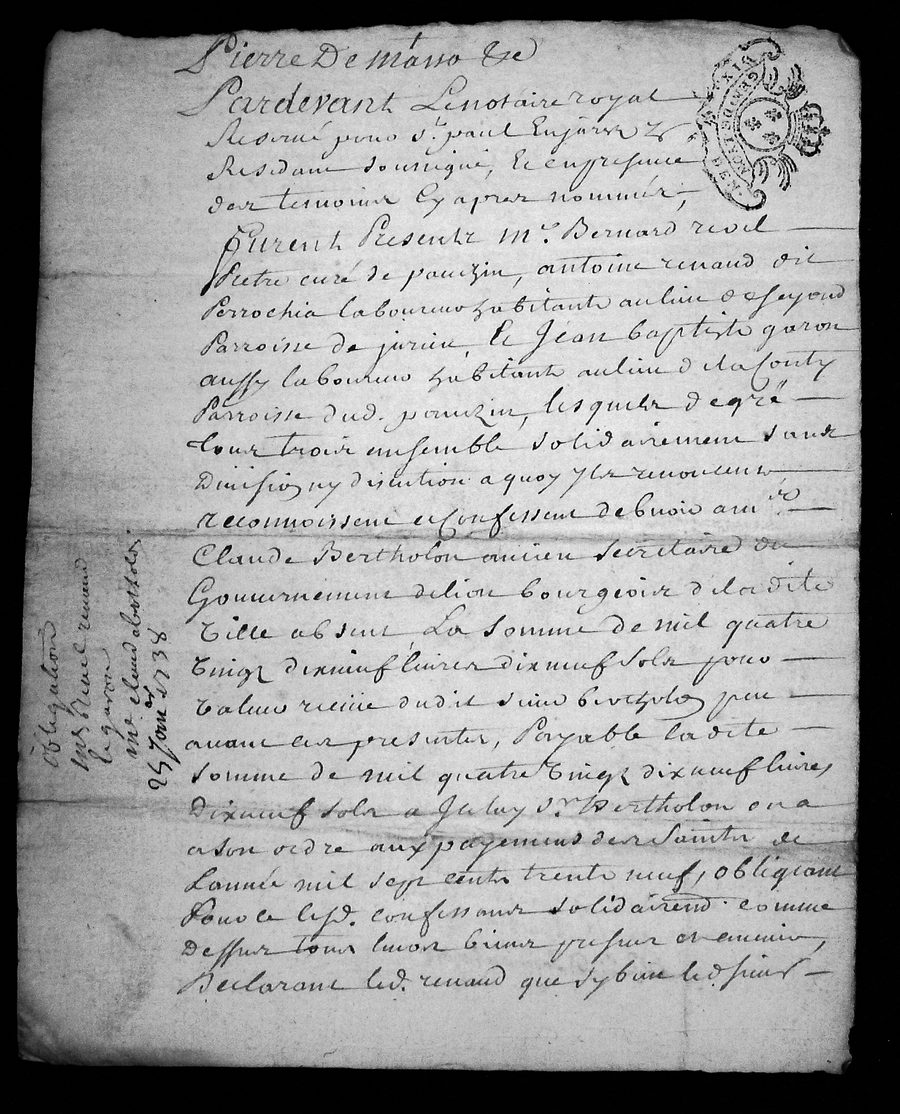 Pierre De masso &c
Pardevant Le notaire royal
Reservé pour St. paul En jarest &
Residant soussigné, Et en presence
des temoins Cy apres nommés,
furent Presents mre. Bernard revel
Pretre curé de pavezin, antoine renaud dit
Perrochia laboureur habitant au lieu de
Parroisse de jurieu, Et Jean baptiste garon
aussy laboureur habitant au lieu de la Conty
Parroisse dud. pavezin, lesquels de gré
Tous trois ensemble solidairement sans
Division ny discution a quoy yls renoncent
reconnoissent et Confessent debvoir a mr.
Claude Bertholon ancien secretaire du
Gouvernement de lion bourgeois de ladite
Ville absent La somme de mil quatre
Vingt dixneuf livres dixneuf sols pour
Valeur reçüe dudit sieur bertholon
avant ces presentes, Payable ladite
somme de mil quatre Vingt dixneuf livres
Dixneuf sols a Iceluy Sr. Bertholon ou a
a son ordre aux payemens des Saints de
Lannée mil sept cents trente neuf, obligeant
Pour ce lesd. confessants solidairemt. comme
Dessus tous leurs biens presens et avenir,
Declarant led. renaud que sy bien led. sieur
obligation
mrs revel renaud
et garon
a
mr. claud bertholon
25 1738
GEN DE LION